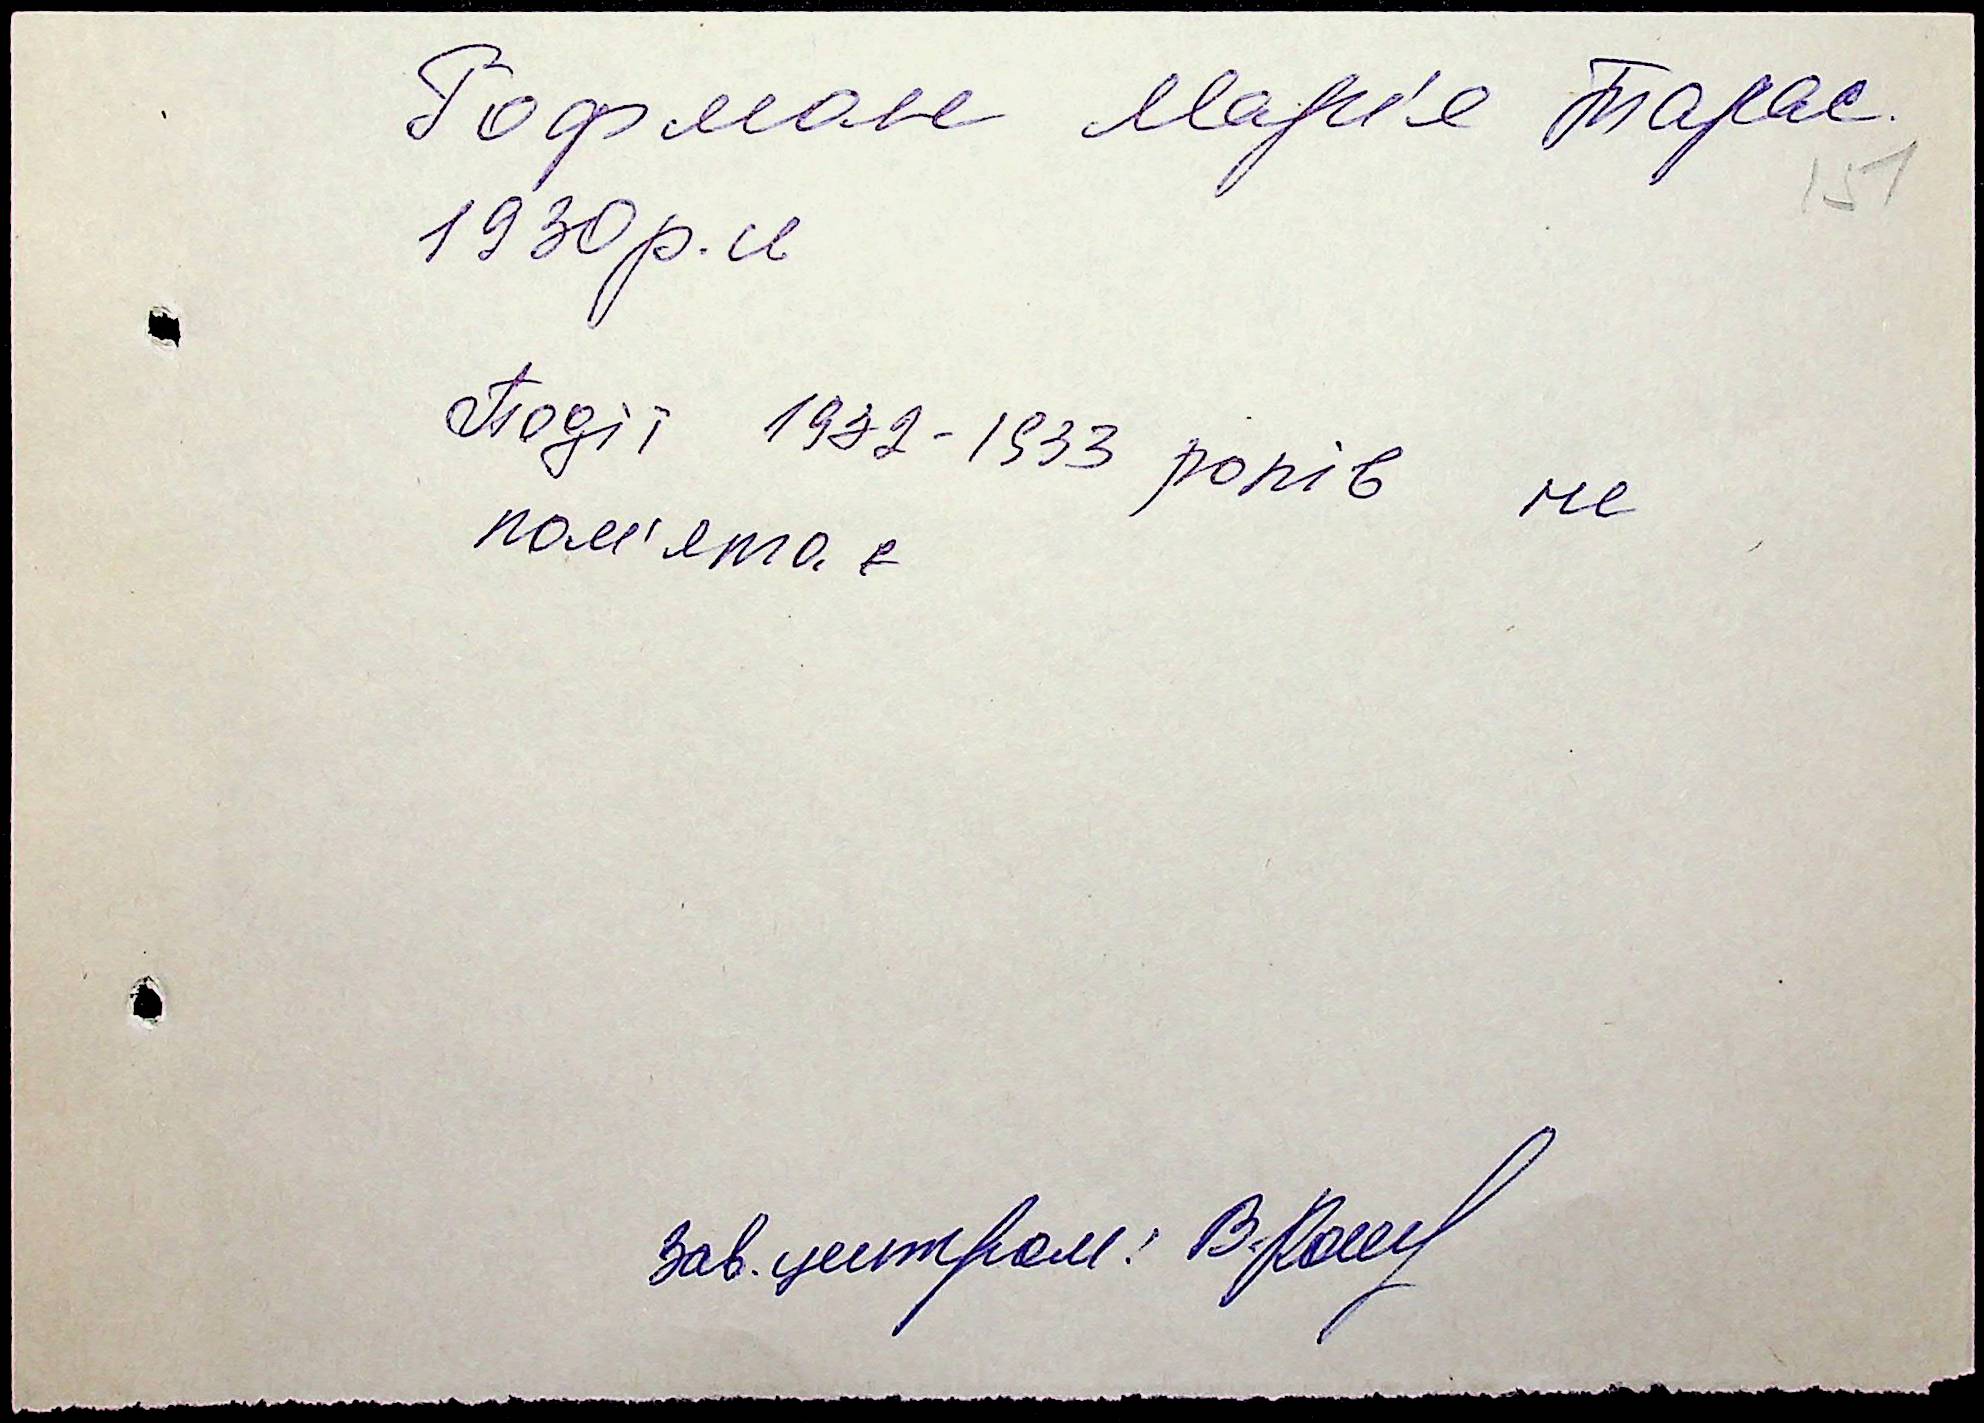 Гофман Марія Тарас.
151
1930 р. н
Події 1932-1933 років не
пам'ятає
Зав. центром: В.